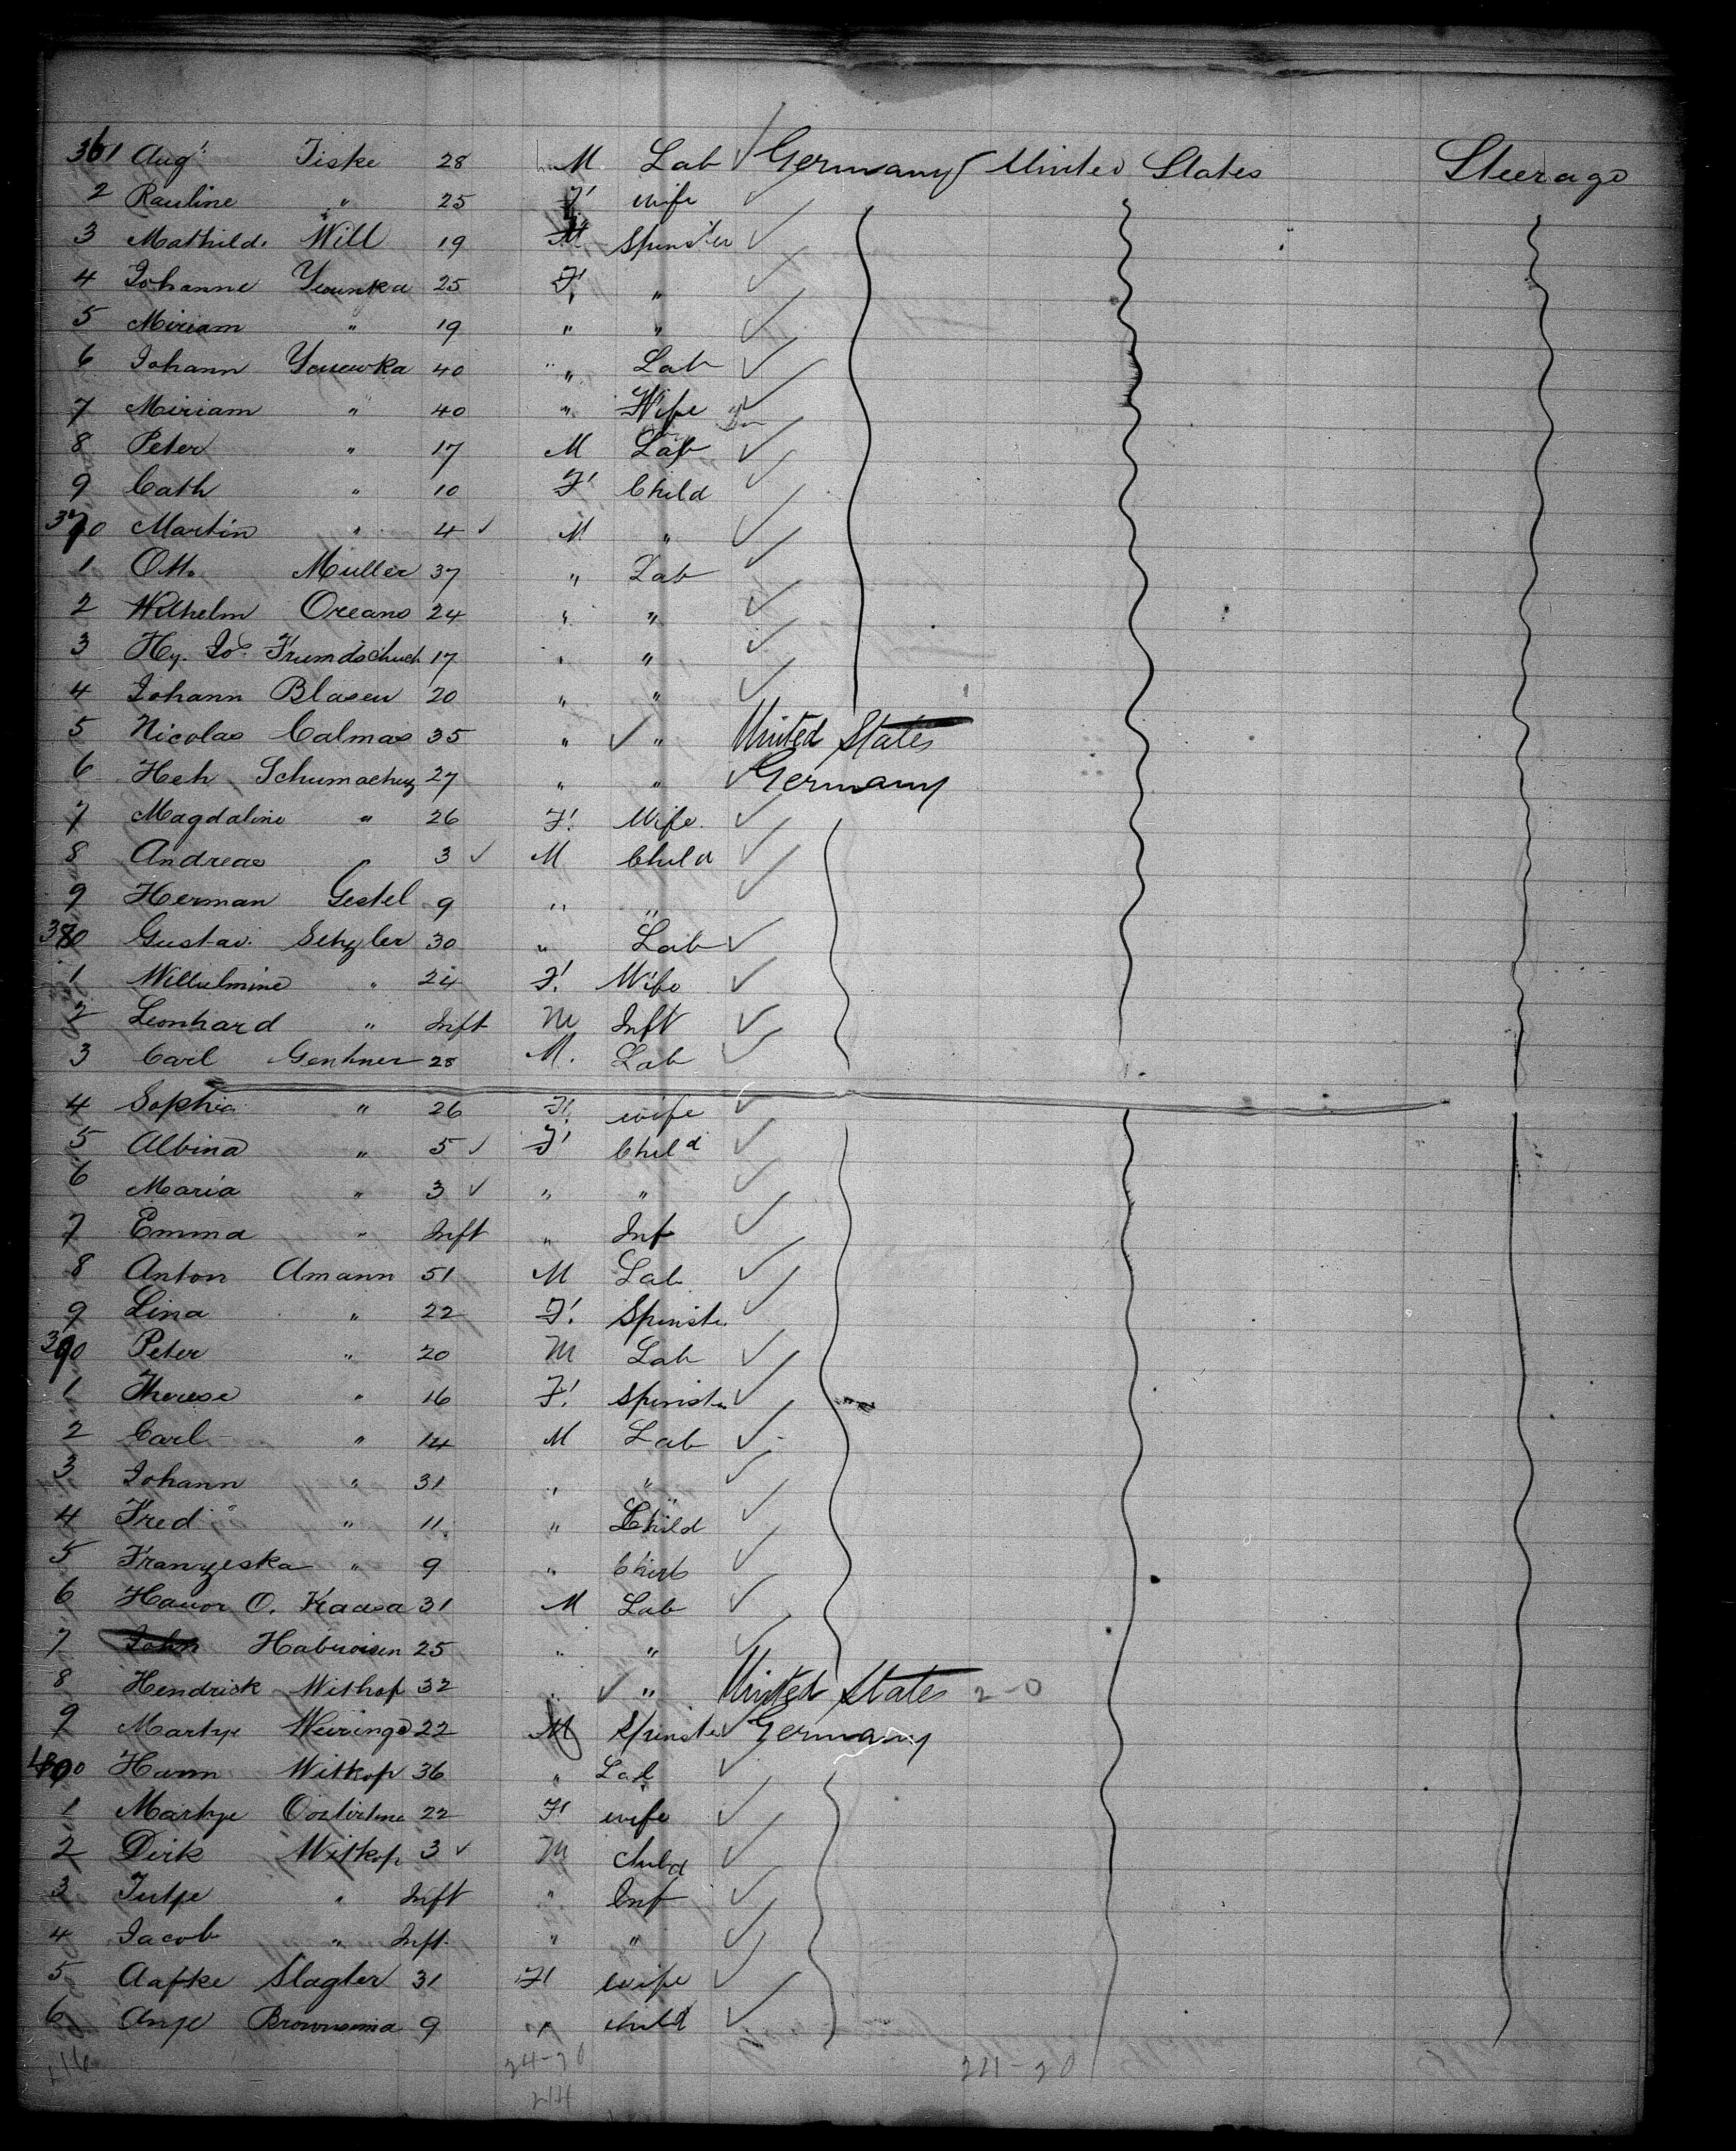 361 Aug! Fiske 28 M Lab Germany United States Steerage
2 Pauline " 25 F wife
3 Mathilde Will 19 F Spinster
4 Johanne 25 F "
5 Miriam " 19 " "
6 Johann 40 " Lab
7 Miriam " 40 " Wife
8 Peter " 17 M Lab
9 Cath " 10 F Child
370 Martin " 4 M "
1 Otto Muller 37 " Lab
2 Wilhelm Oreans 24 " "
3 Hy. Jos. 17 " "
4 Johann Blasen 20 " "
5 Nicolas Calmas 35 " " United States
6 Hch Schumacher 27 " " Germany
7 Magdaline " 26 F. Wife
8 Andreas " 3 M Child
9 Herman Gestel 9 " "
380 Gustav. 30 " Lab
1 Wilhelmine " 24 F. Wife
2 Leonhard " Inft M Inft
3 Carl Genkner 28 M. Lab
4 Sophia " 26 F. wife
5 Albina " 5 F Child
6 Maria " 3 " "
7 Emma " Inft " Inf
8 Anton Amann 51 M Lab
9 Lina " 22 F. Spinster
390 Peter " 20 M Lab
1 Therese " 16 F. Spinster
2 Carl " 14 M Lab
3 Johann " 31 " "
4 Fred " 11 " Child
5 Franzeska " 9 " Child
6 O. Kaasa 31 M Lab
7 John 25 " "
8 Hendrick Withop 32 " " United States 2-0
9 Martje Weiringa 22 M Spinster Germany
400 Harm Witkop 36 " Lab
1 Martje 22 F wife
2 Dirk Witkop 3 M child
3 " Inft " Inf
4 Jacob " Inft " "
5 Aafke Slagter 31 F wife
6 Anje 9 " child
24-20 24-20